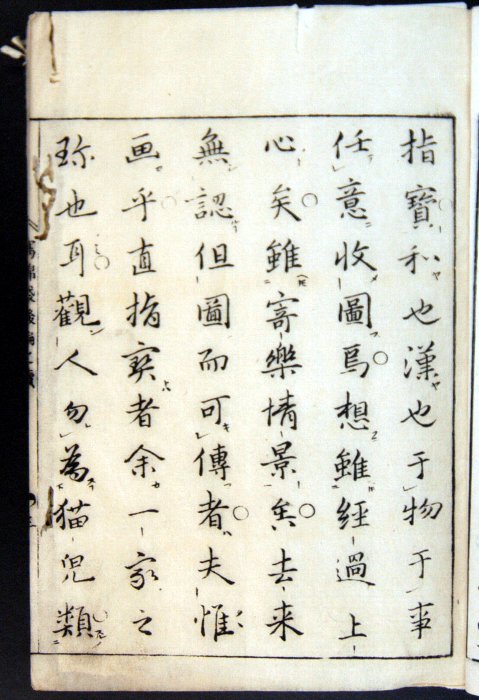 指寶和也漢也于物于事
任意收圖焉想雖經過上
心矣雖寄樂情景矣去来
無認但圖而可傳者夫惟
画乎直指寳者余一家之
珎也耳觀人勿為猫児類